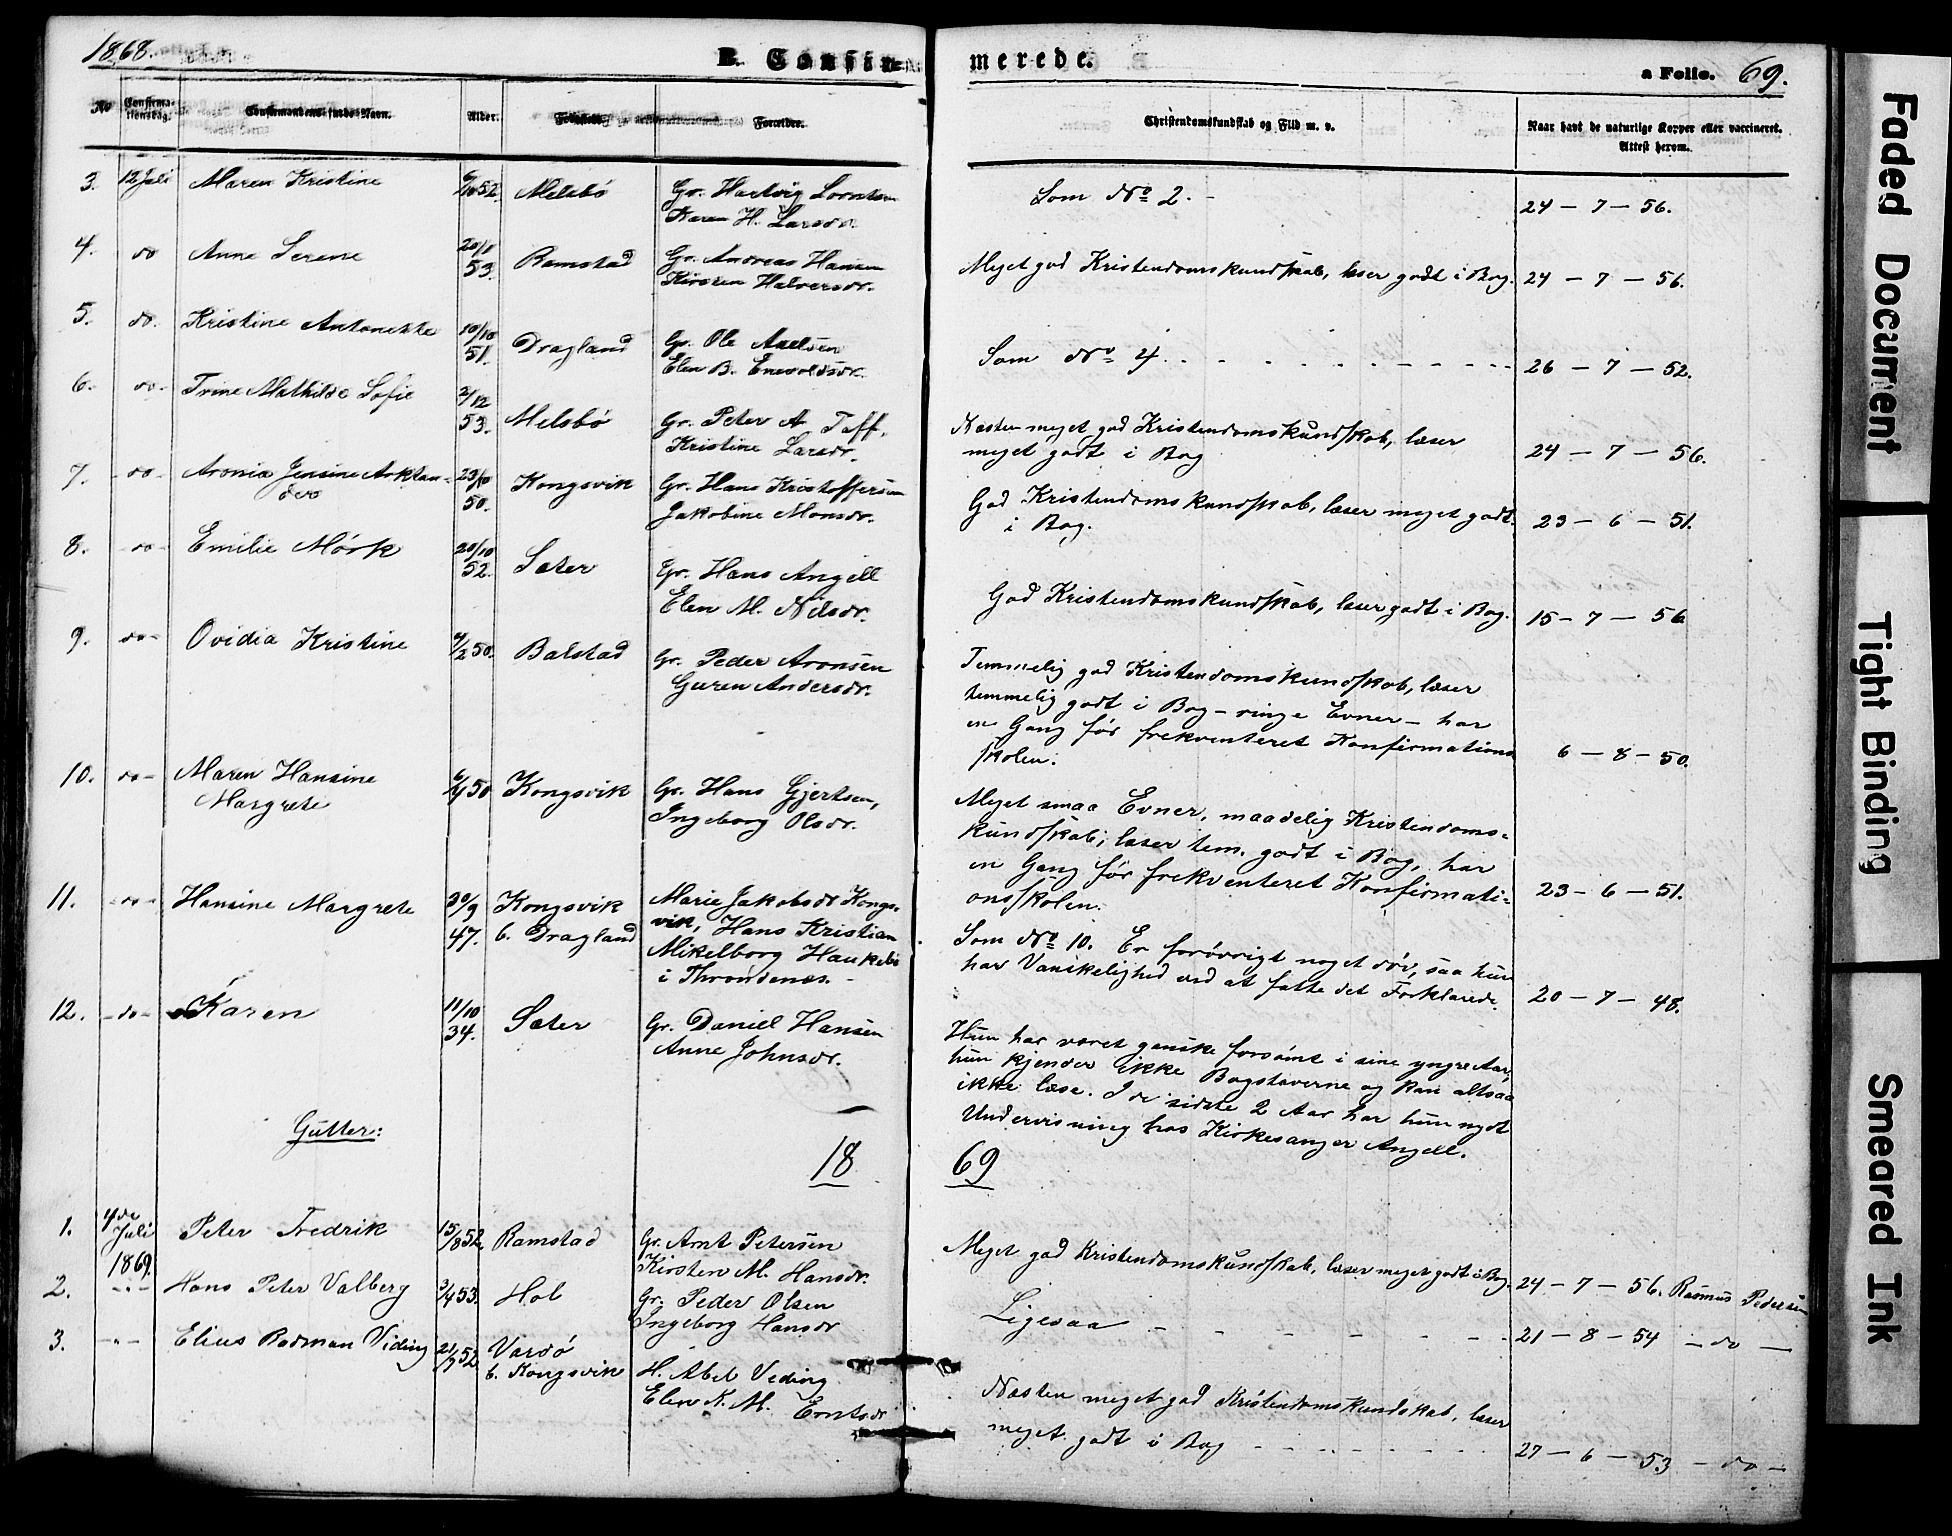 1868.
B. Confir
merede.
a Folio. 69.
No
Confirma-
tionsdag.
Confirmandens fulde Navn.
Alder.
Fødested.
Forældre.
Christendomskundskab og Flid m. v.
Naar havt de naturlige Kopper eller vaccineret.
Attest herom.
3. 12 Juli Maren Kristine 6/10 52. Melsbö Gr. Hartvig Lorntsen
Karen H. Larsdr.
Som No 2. -
24 - 7 - 56.
4. do Anne Serene 20/11
53. Ramstad Gr. Andreas Hansen
Kirsten Halversdr.
Meget god Kristendomskundskab, læser godt i Bog.
24 - 7 - 56.
5. do. Kristine Antonette 10/10
51. Dragland Gr. Ole Axelsen
Elen B. Enevoldsdr.
Som No 4.
26 - 7 - 52.
6. do- Trine Mathilde Sofie 2/12
53. Melsbö Gr. Peter A. Toff.
Kristine Larsdr.
Næsten meget god Kristendomskundskab, læser
meget godt i Bog
24 - 7 - 56.
7. -do- Aronia Jensine Arktan-
ders 23/10
50. Kongsvik Gr. Hans Kristoffersen
Jakobine Monsdr.
God Kristendomskundskab, læser meget godt
i Bog.
23 - 6 - 51.
8. -do- Emilie Mörk 20/10
52. Sæter Gr. Hans Angell
Elen M. Nilsdr.
God Kristendomskundskab, læser godt i Bog.
15 - 7 - 56
9. do- Ovidia Kristine 4/2 50. Balstad Gr. Peder Aronsen
Guren Andersdr.
Temmelig god Kristendomskundskab, læser
temmelig godt i Bog - ringe Evner - har
en Gang før frekventeret Konfirmations
skolen.
6 - 8 - 50.
10. do- Maren Hansine
Margrete 50 Kongsvik Gr. Hans Gjertsen,
Ingeborg Olsdr.
Meget smaa Evner, maadelig Kristendoms-
kundskab; læser tem. godt i Bog, har
en Gang før frekventeret Konfirmati-
onsskolen.
23 - 6 - 51.
11. -do- Hansine Margrete 20/9
47. Kongsvik
b. Dragland Marie Jakobsdr Kongs-
vik, Hans Kristian
Mikelborg Haukebö
i Throndenes. -
Som No 10. Er forövrigt noget döv, saa hun
har Vanskelighed ved at fatte det Forklarede.
20 - 7 - 48.
12. -do- Karen 11/10
34. Sæter Gr. Daniel Hansen
Anne Johnsdr.
Hun har været ganske forsömt i sine yngre Aar,
hun kjender ikke Bogstaverne og kan altsaa
ikke læse. I de sidste 2 Aar har hun nydt
Undervisning hos Kirkesanger Angell.
Gutter:
18
69
1. 4de
Juli
1869. Peter Fredrik 15/8 52. Ramstad Gr. Arnt Petersen
Kirsten M. Hansdr.
Meget god Kristendomskundskab, læser meget godt i Bog.
24 - 7 - 56. Rasmus Pedersen
2. -"- Hans Peter Valberg 3/4 53. Hol Gr. Peder Olsen
Ingeborg Hansdr
Ligesaa
21 - 8 - 54 - do -
3. -"- Elius Rodman Viding 21/7 52 Vardö
b. Kongsvik H. Abel Veding
Elen K. M. Erntsdr
Næsten meget god Kristendomskundskab, læser
meget godt i Bog
27 - 6 - 53 - do -
Faded Document
Tight Binding
Smeared Ink